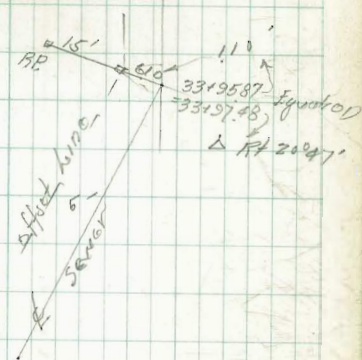 15'
RP.
6.10'
1.10'
33+95.87
=33+97.48
Equation
Δ Rt 20°47'
Offset Line
5'
Sewer